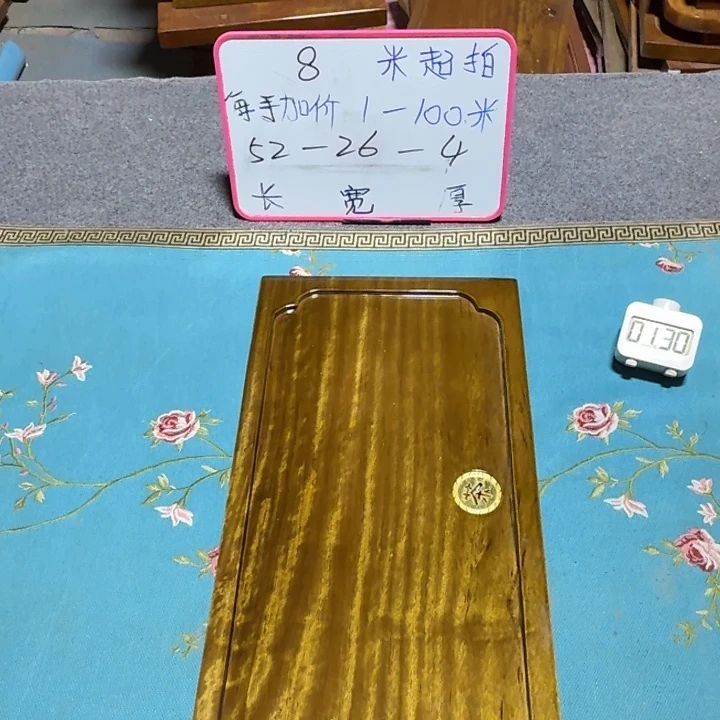 8 米起拍
每手加价 1-100米
52-26-4
长 宽 厚
01.30